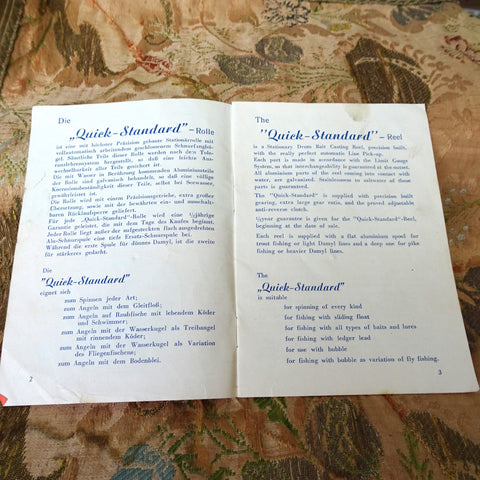 Die
„Quick-Standard" – Rolle
ist eine mit höchster Präzision gebaute Stationärrolle mit
vollautomatisch arbeitendem geschlossenem Schnurfangbügel.
Sämtliche Teile dieser Rolle werden nach dem Toleranzlehrensystem
hergestellt, so daß eine leichte Auswechselbarkeit
aller Teile gesichert ist.
Die mit Wasser in Berührung kommenden Aluminiumteile
der Rolle sind galvanisch behandelt, so daß eine völlige
Korrosionsbeständigkeit dieser Teile, selbst bei Seewasser,
gewährleistet ist.
Die Rolle wird mit einem Präzisionsgetriebe, extra großer
Übersetzung, sowie mit der bewährten ein- und ausschaltbaren
Rücklaufsperre geliefert.
Für jede „Quick-Standard"-Rolle wird eine ½jährige
Garantie geleistet, die mit dem Tage des Kaufes beginnt.
Jeder Rolle liegt außer der aufgesteckten flach ausgedrehten
Alu-Schnurspule eine tiefe Ersatz-Schnurspule bei.
Während die erste Spule für dünnes Damyl, ist die zweite
für stärkeres gedacht.
Die
"Quick-Standard"
eignet sich
zum Spinnen jeder Art;
zum Angeln mit dem Gleitfloß;
zum Angeln auf Raubfische mit lebendem Köder
und Schwimmer;
zum Angeln mit der Wasserkugel als Treibangel
mit rinnendem Köder;
zum Angeln mit der Wasserkugel als Variation
des Fliegenfischens;
zum Angeln mit dem Bodenblei.
2
The
"Quick-Standard" – Reel
is a Stationary Drum Bait Casting Reel, precision built,
with the really perfect automatic Line Pick-up.
Each part is made in accordance with the Limit Gauge
System, so that interchangeability is guaranteed at the outset.
All aluminium parts of the reel coming into contact with
water, are galvanized. Resistances to saltwater of all these
parts is guaranteed.
The "Quick-Standard" is supplied with precision built
gearing, extra large gear ratio, and the proved adjustable
anti-reverse clutch.
½year guarantee is given for the "Quick-Standard"-Reel,
beginning at the date of sale.
Each reel is supplied with a flat aluminium spool for
trout fishing or light Damyl lines and a deep one for pike
fishing or heavier Damyl lines.
The
„Quick-Standard"
is suitable
for spinning of every kind
for fishing with sliding float
for fishing with all types of baits and lures
for fishing with ledger lead
for use with bubble
for fishing with bubble as variation of fly fishing.
3